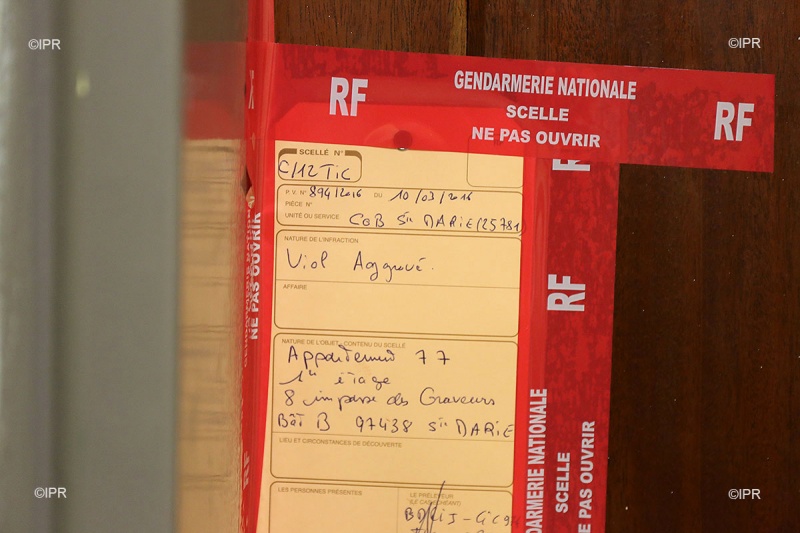 ©IPR
©IPR
GENDARMERIE NATIONALE
RF
SCELLE
RF
NE PAS OUVRIR
SCELLÉ N°
C/12 TIC
P.V. N° 894/2016 DU 10/03/2016
PIÈCE N°
UNITÉ OU SERVICE COB Ste MARIE (25781)
NATURE DE L'INFRACTION
Viol Aggravé.
AFFAIRE
NATURE DE L'OBJET - CONTENU DU SCELLÉ
Appartement 77
1er étage
8 impasse des Graveurs
Bât B 97438 Ste MARIE
LIEU ET CIRCONSTANCES DE DÉCOUVERTE
LES PERSONNES PRÉSENTES
LE PRÉLEVEUR
NE PAS OUVRIR
RF
RF
RF
GENDARMERIE NATIONALE
SCELLE
NE PAS OUVRIR
©IPR
©IPR